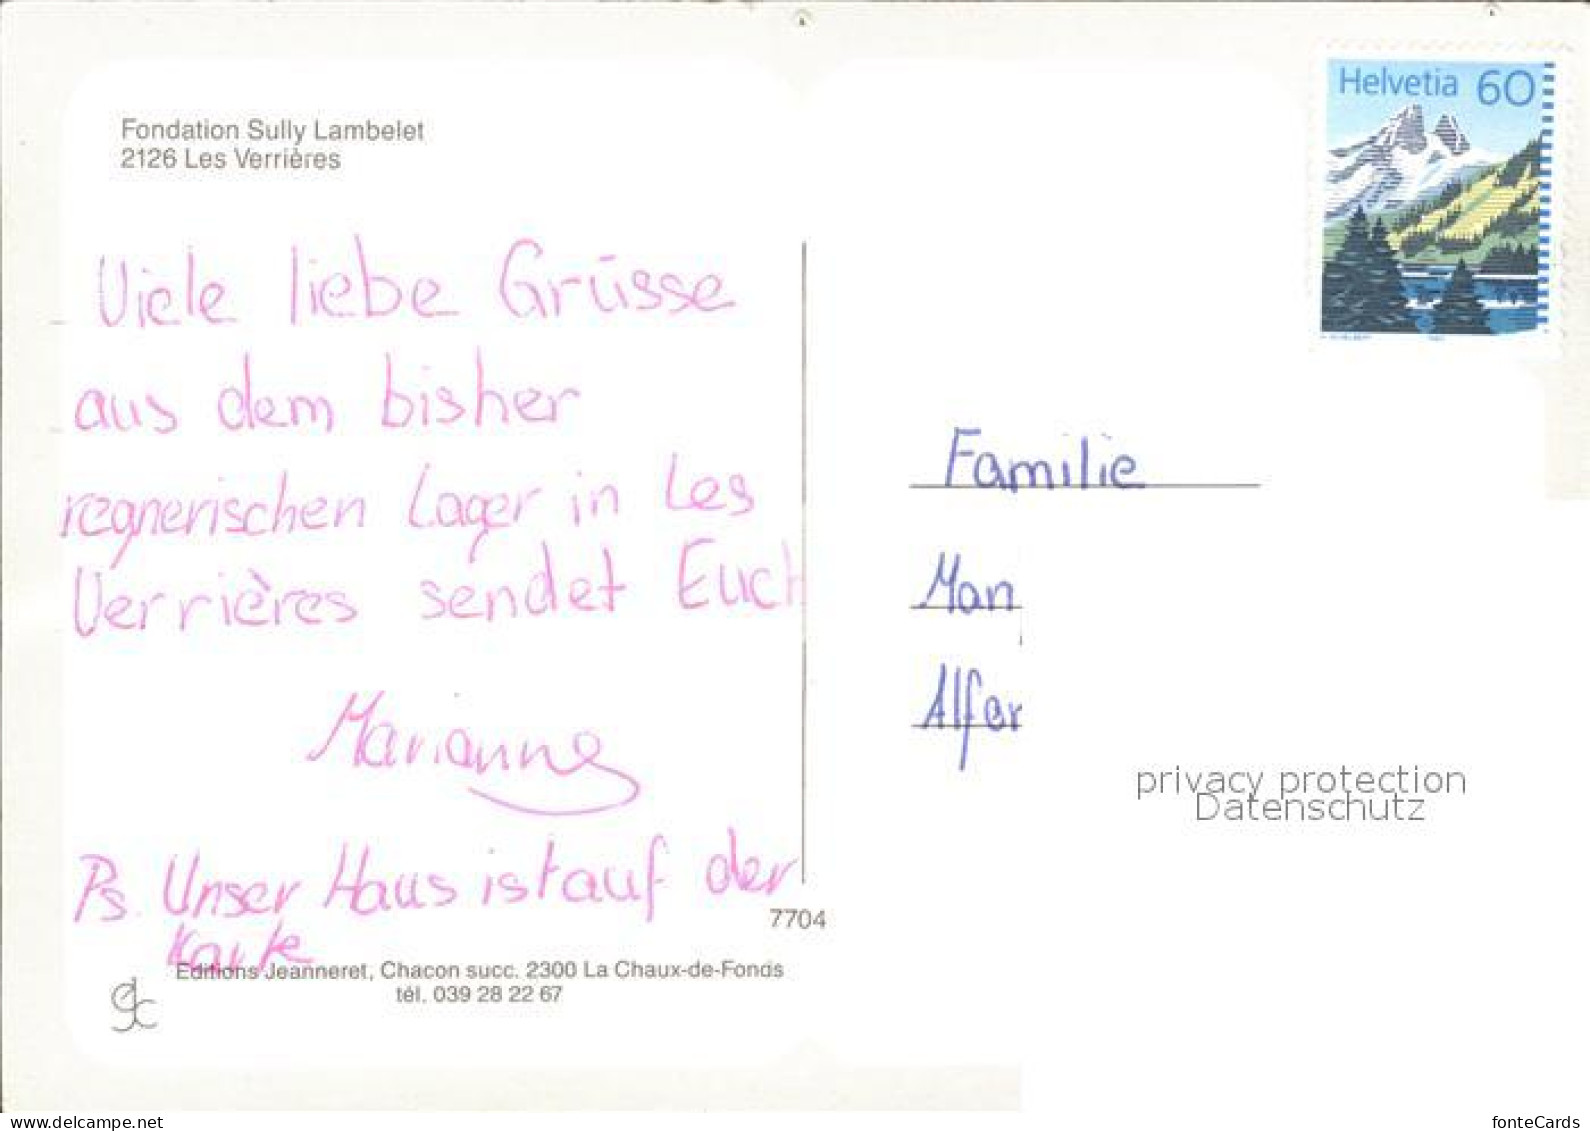 Fondation Sully Lambelet
2126 Les Verrières
Viele liebe Grüsse
aus dem bisher
regnerischen Lager in Les
Verrières sendet Euch
Marianne
Ps. Unser Haus ist auf der
Karte
7704
Editions Jeanneret, Chacon succ. 2300 La Chaux-de-Fonds
tél. 039 28 22 67
gjc
Helvetia 60
Familie
Man
Alfer
privacy protection
Datenschutz
www.delcampe.net
fonteCards